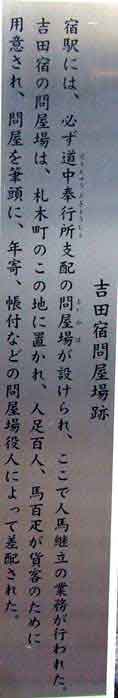 吉田宿問屋場跡
宿駅には、必ず道中奉行所支配の問屋場が設けられ、ここで人馬継立の業務が行われた。
吉田宿の問屋場は、札木町のこの地に置かれ、人足百人、馬百疋が貨客のために
用意され、問屋を筆頭に、年寄、帳付などの問屋場役人によって差配された。